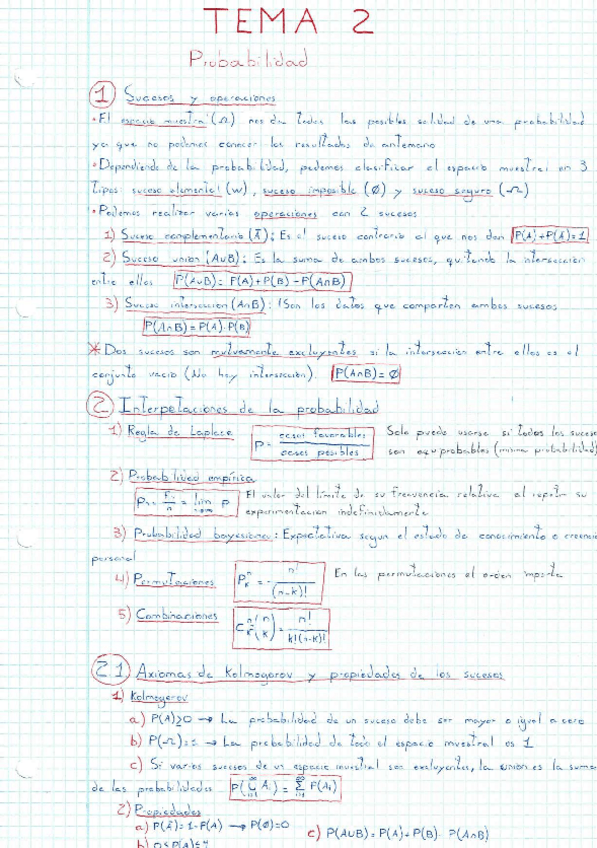 TEMA 2
Probabilidad
1 Sucesos y operaciones
• El espacio muestral (Ω) nos da todas las posibles salidas de una probabilidad
ya que no podemos conocer los resultados de antemano
• Dependiendo de la probabilidad, podemos clasificar el espacio muestral en 3
tipos suceso elemental (w), suceso imposible (Ø) y suceso seguro (Ω)
• Podemos realizar varias operaciones con 2 sucesos
1) Suceso complementario (Ā): Es el suceso contrario al que nos dan P(A)+P(Ā)=1
2) Suceso unión (A∪B): Es la suma de ambos sucesos, quitando la intersección
entre ellos P(A∪B) = P(A)+P(B)-P(A∩B)
3) Suceso intersección (A∩B): Son los datos que comparten ambos sucesos
P(A∩B) = P(A)·P(B)
* Dos sucesos son mutuamente excluyentes si la intersección entre ellos es el
conjunto vacío (No hay intersección). P(A∩B) = Ø
2 Interpetaciones de la probabilidad
1) Regla de Laplace P = casos favorables / casos posibles Solo puede usarse si todos los sucesos
son equiprobables (misma probabilidad)
2) Probabilidad empírica
El valor del límite de su frecuencia relativa al repetir su
experimentación indefinidamente
3) Probabilidad bayesiana: Expectativa segun el estado de conocimiento o creencia
personal
4) Permutaciones P n k = n! / (n-k)! En las permutaciones el orden importa
5) Combinaciones C n k (n k) = n! / k!(n-k)!
2.1 Axiomas de Kolmogorov y propiedades de los sucesos
1) Kolmogorov
a) P(A)≥0 → La probabilidad de un suceso debe ser mayor o igual a cero
b) P(Ω)=1 → La probabilidad de todo el espacio muestral es 1
c) Si varios sucesos de un espacio muestral son excluyentes, la unión es la suma
de las probabilidades P(∪ Ai) = Σ P(Ai)
2) Propiedades
a) P(Ā)=1-P(A) → P(Ø)=0 c) P(A∪B) = P(A)+P(B)-P(A∩B)
b) 0≤P(A)≤1